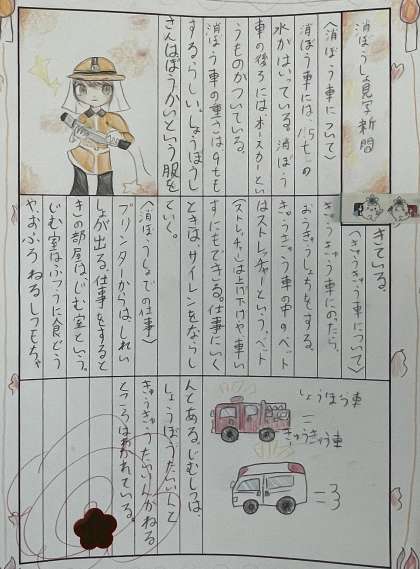 消ぼうしょ見学新聞
〈消ぼう車について〉
消ぼう車には、1.5tの
水がはいっている。消ぼう
車の後ろには、ホースカーとい
うものがついている。
消ぼう車の重さは9tも
するらしい。しょうぼうし
さんはぼうかいという服を
きている。
〈きゅうきゅう車について〉
きゅうきゅう車にのたら、
おうきゅうしょちをする。
きゅうきゅう車の中のベット
はストレッチャーという。ベット
(ストレッチャー)は上げ下げや車い
すにもできる。仕事にいく
ときは、サイレンをならし
ていく。
〈消ぼうしょでの仕事〉
プリンターからはしれい
しょが出る。仕事をすると
きの部屋はじむ室という。
じむ室はふつうに食どう
や、おふろ、ねるしつもちゃ
んとある。じむしつは、
しょうぼうたいいんと
きゅうきゅうたいいんがねる
ところはわかれている。
しょうぼう車
きゅうきゅう車